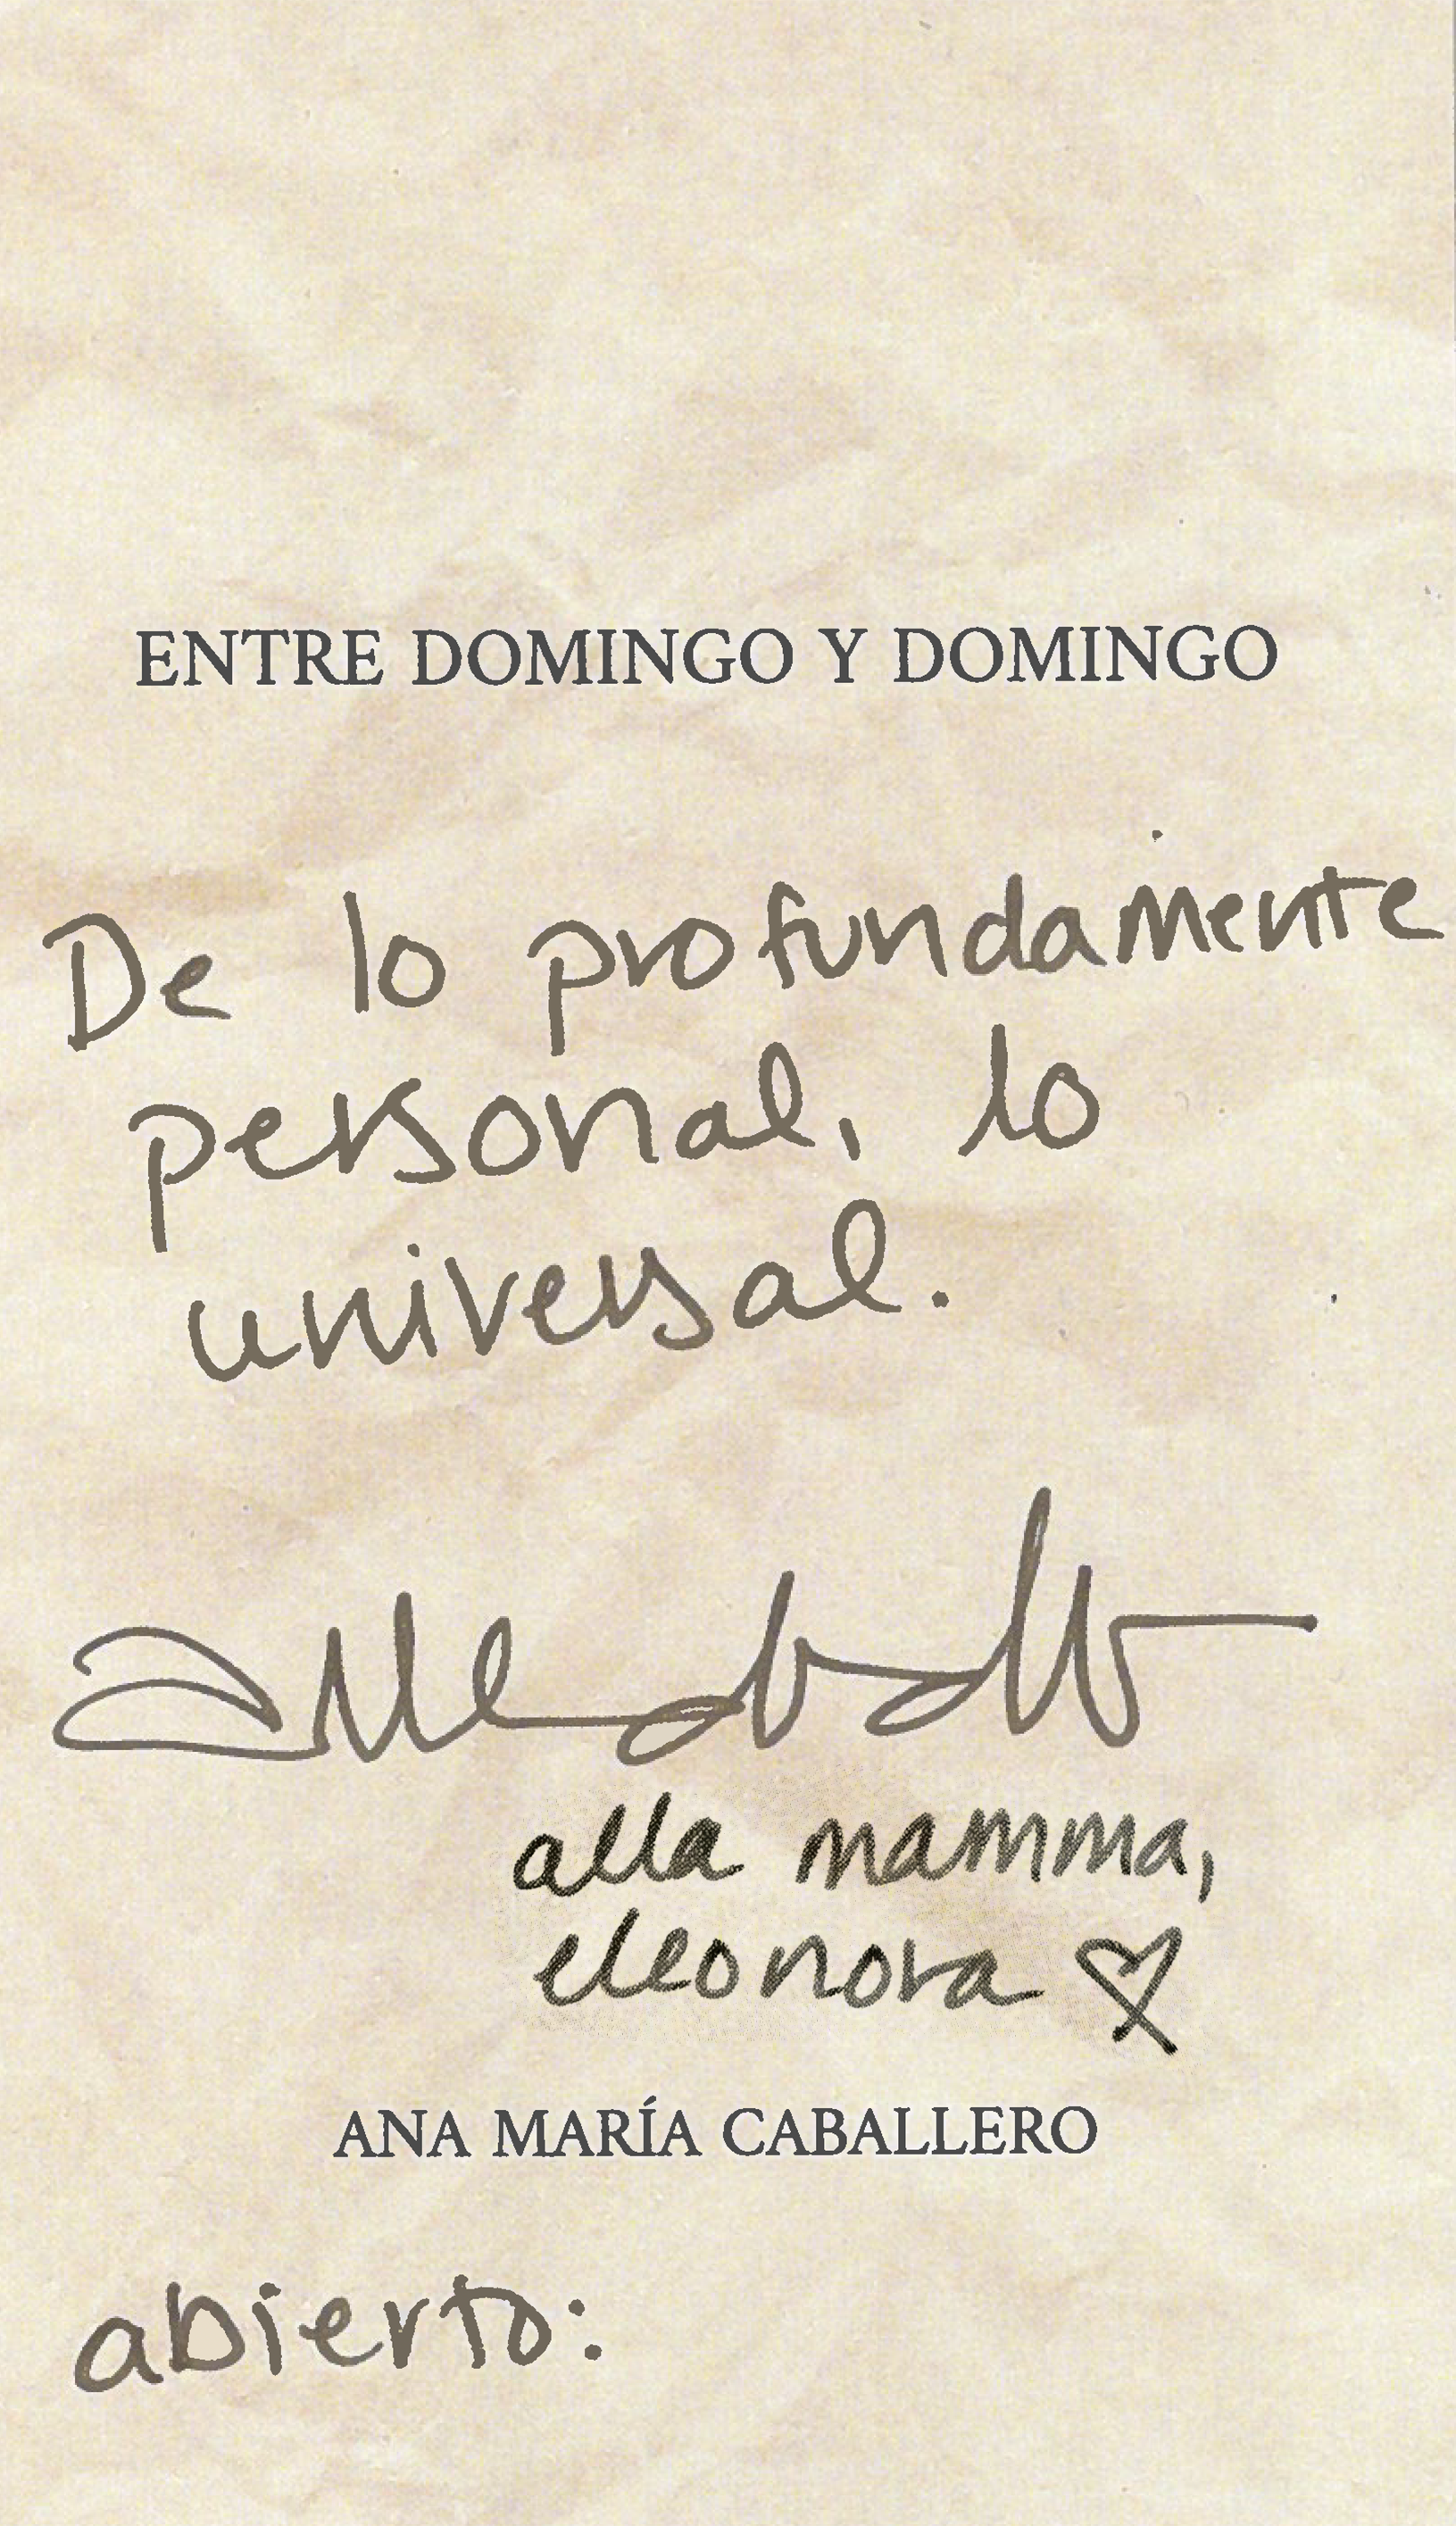 ENTRE DOMINGO Y DOMINGO
De lo profundamente
personal, lo
universal.
alla mamma,
eleonora
ANA MARÍA CABALLERO
abierto: